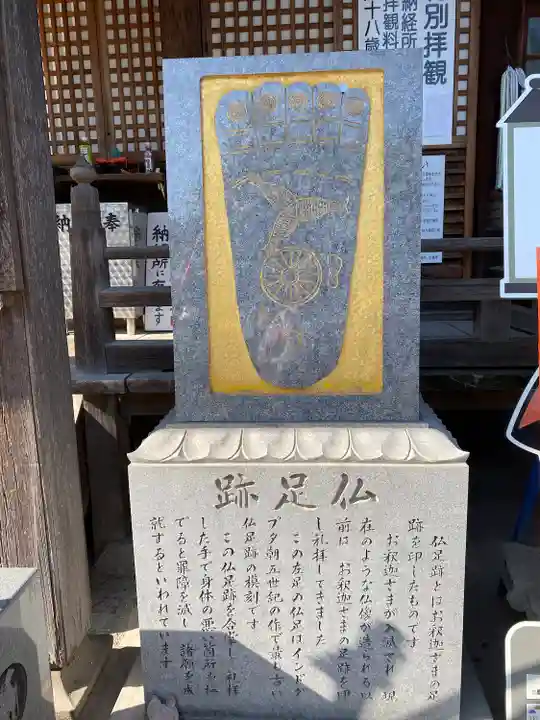 特別拝観
納経所
拝観料
十八歳
奉
納
納経所に有ります
仏足跡
仏足跡とはお釈迦さまの足
跡を印したものです
お釈迦さまが入滅され 現
在のような仏像が造られる以
前は お釈迦さまの足跡を印
し礼拝してきました
この左足の仏足はインドグ
プタ朝五世紀の作で最も古い
仏足跡の模刻です
この仏足跡を合掌し 礼拝
した手で身体の悪い箇所を払
でると罪障を滅し 諸願を成
就するといわれています